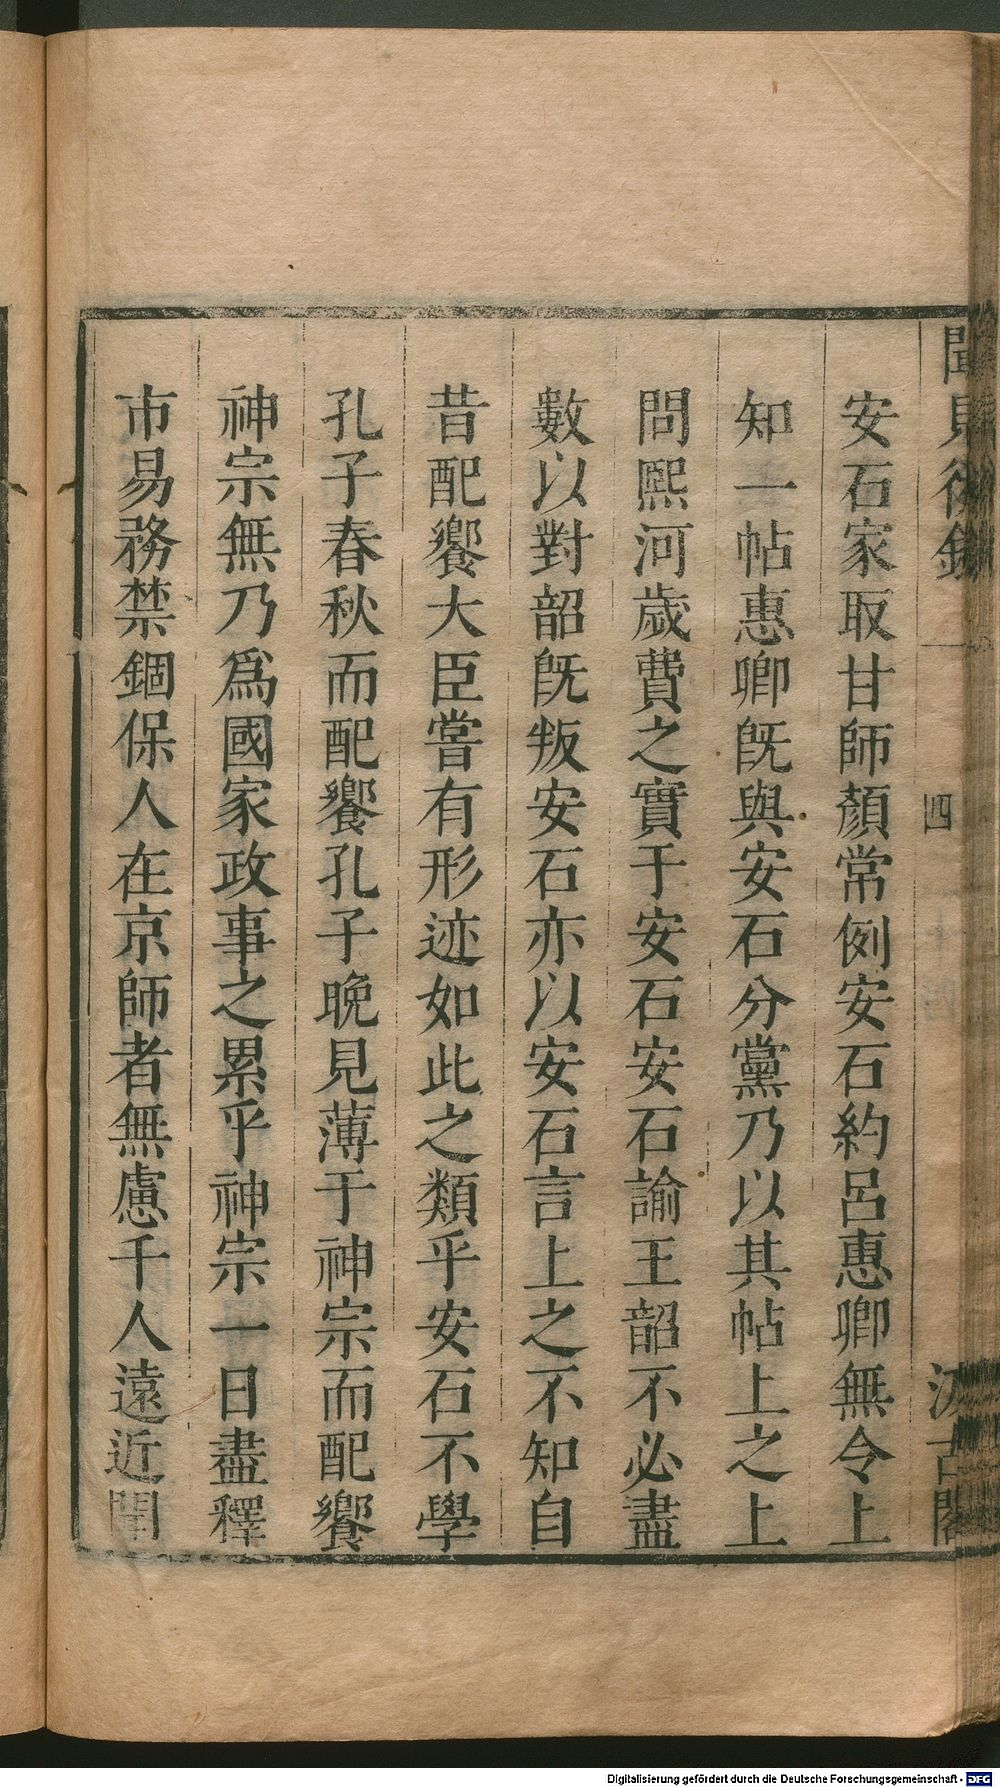 聞見後錄
四
汲古閣
安石家取甘師顏常例安石約呂惠卿無令上
知一帖惠卿旣與安石分黨乃以其帖上之上
問熙河歲費之實于安石安石諭王韶不必盡
數以對韶旣叛安石亦以安石言上之不知自
昔配饗大臣嘗有形迹如此之類乎安石不學
孔子春秋而配饗孔子晩見薄于神宗而配饗
神宗無乃爲國家政事之累乎神宗一日盡釋
市易務禁錮保人在京師者無慮千人遠近聞
Digitalisierung gefördert durch die Deutsche Forschungsgemeinschaft - DFG